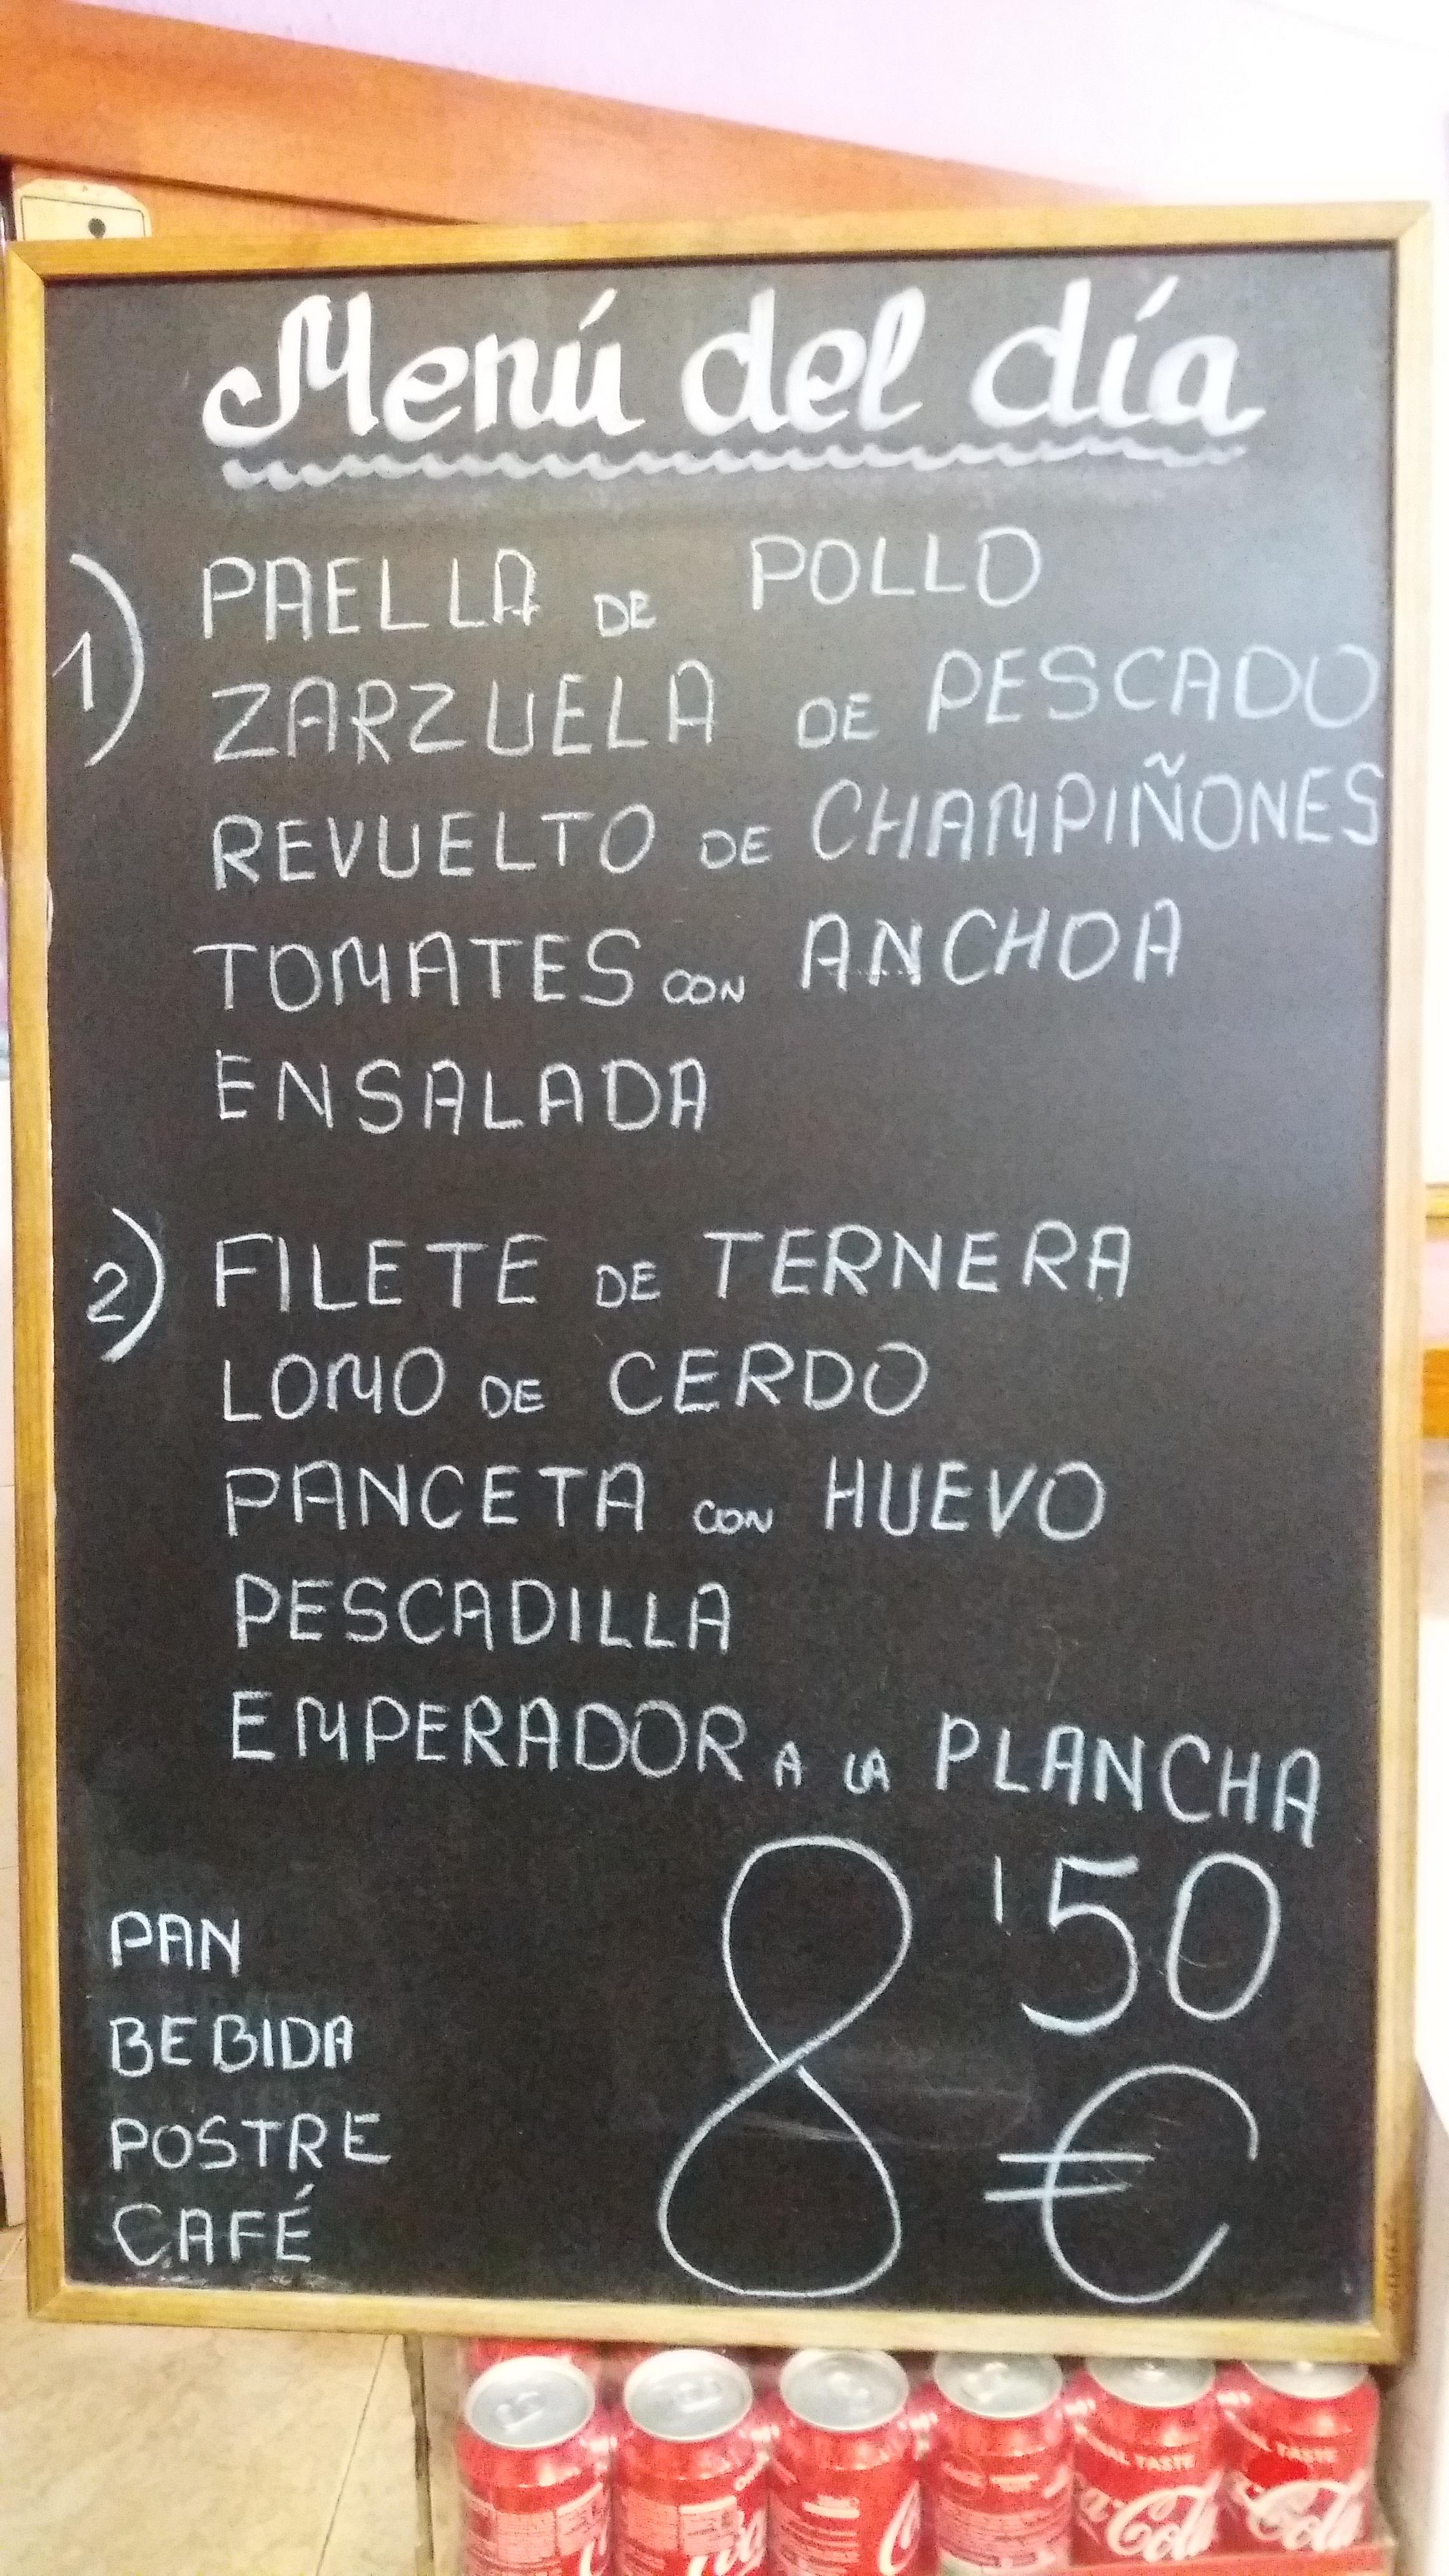 Menú del día
1) PAELLA DE POLLO
ZARZUELA DE PESCADO
REVUELTO DE CHAMPIÑONES
TOMATES CON ANCHOA
ENSALADA
2) FILETE DE TERNERA
LOMO DE CERDO
PANCETA CON HUEVO
PESCADILLA
EMPERADOR A LA PLANCHA
PAN
BEBIDA
POSTRE
CAFÉ
8'50
€
TASTE
TASTE
Cola
Cola